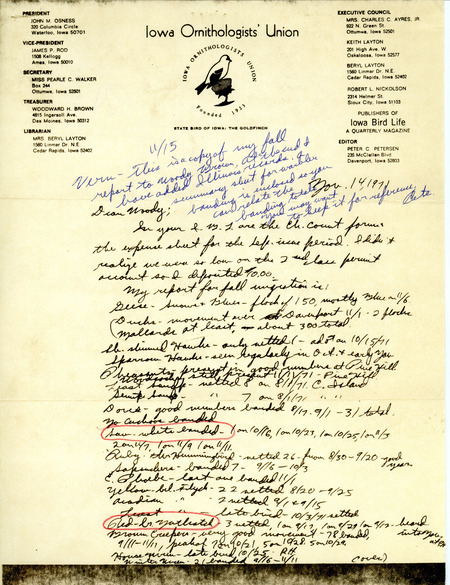 PRESIDENT
JOHN M. OSNESS
320 Columbia Circle
Waterloo, Iowa 50701
VICE-PRESIDENT
JAMES P. ROD
1508 Kellogg
Ames, Iowa 50010
SECRETARY
MISS PEARLE C. WALKER
Box 244
Ottumwa, Iowa 52501
TREASURER
WOODWARD H. BROWN
4815 Ingersoll Ave.
Des Moines, Iowa 50312
LIBRARIAN
MRS. BERYL LAYTON
1560 Linmar Dr. N.E
Cedar Rapids, Iowa 52402
Iowa Ornithologists' Union
IOWA ORNITHOLOGISTS UNION
Founded 1923
STATE BIRD OF IOWA: THE GOLDFINCH
EXECUTIVE COUNCIL
MRS. CHARLES C. AYRES, JR
922 N. Green St.
Ottumwa, Iowa 52501
KEITH LAYTON
201 High Ave. W
Oskaloosa, Iowa 52577
BERYL LAYTON
1560 Linmar Dr. N.E.
Cedar Rapids, Iowa 52402
ROBERT L. NICKOLSON
2314 Helmer St.
Sioux City, Iowa 51103
PUBLISHERS OF
Iowa Bird Life
A QUARTERLY MAGAZINE
EDITOR
PETER C. PETERSEN
235 McClellan Blvd
Davenport, Iowa 52803
11/15
Vern - This is a copy of my fall
report to Woody Brown,
have added Illinois records. The
summary sheet for
banding is enclosed so you
can relate the
banding total
may want
to keep it for reference
Pete
Nov. 14, 1971
Dear Woody;
In your are the Ch. Count forms
the expense sheet for the period. I didn't
realize we were so low on the 2nd class permit
account so I deposited 70.00.
My report for fall migration is:
Geese - Snows & Blues - flock of 150, mostly Blue 11/6
Ducks - movement over Davenport 11/1 - 2 flocks
Mallards at least, about 300 total
Sh. shinned Hawk - only netted 1 - ad on 10/15/71
Sparrow Hawk - seen regularly in Oct. & early Nov
present in good numbers at Pine Hill
netted 8 on 8/1/71 C. Island
7 on 8/1/71 " "
Doves - good numbers banded 8/17-9/1 - 31 total.
No Cuckoos banded
Saw-whets banded - 1 on 10/16, 1 on 10/23, 1 on 10/25, 1 on 11/3
2 on 11/7, 1 on 11/9 1 on 11/11
Ruby-thr Hummingbird - netted 26 - from 8/30-9/20
Sapsuckers - banded 7 - 9/16-10/3
E. Phoebe - last one banded 11/1
Yellow-bel. Flyct - 22 netted 8/20-9/25
Acadian " - 2 netted 9/1 & 9/15
Least " - late bird - 10/3/71 netted
Red-br Nuthatch 3 netted, 1 on 9/17, 1 on 9/29, 1 on - heard
Brown Creepers - very good movement - 78 banded,
9/11-11/11, peak of 7 on 10/21, 5 on 10/28, 5 on 10/29
House Wren - late bird 10/25 P.H.
Winter Wren - 21 banded 9/16-11/11
(over)